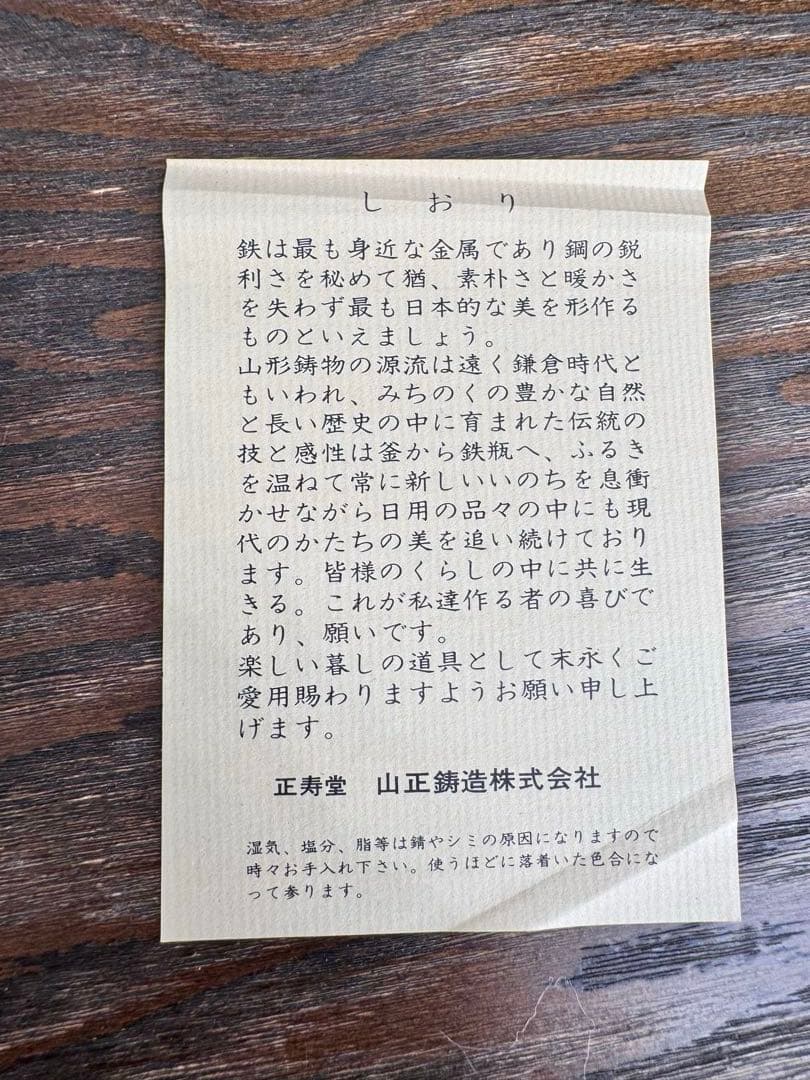 しおり
鉄は最も身近な金属であり鋼の鋭
利さを秘めて猶、素朴さと暖かさ
を失わず最も日本的な美を形作る
ものといえましょう。
山形鋳物の源流は遠く鎌倉時代と
もいわれ、みちのくの豊かな自然
と長い歴史の中に育まれた伝統の
技と感性は釜から鉄瓶へ、ふるき
を温ねて常に新しいいのちを息衝
かせながら日用の品々の中にも現
代のかたちの美を追い続けており
ます。皆様のくらしの中に共に生
きる。これが私達作る者の喜びで
あり、願いです。
楽しい暮しの道具として末永くご
愛用賜わりますようお願い申し上
げます。
正寿堂 山正鋳造株式会社
湿気、塩分、脂等は錆やシミの原因になりますので
時々お手入れ下さい。使うほどに落着いた色合にな
って参ります。